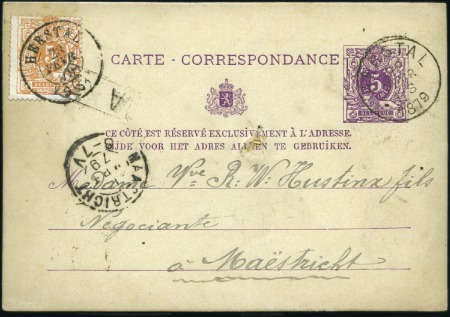 HERSTAL
1879
CARTE - CORRESPONDANCE
5
HERSTAL
1879
A
CE CÔTÉ EST RÉSERVÉ EXCLUSIVEMENT À L'ADRESSE.
ZIJDE VOOR HET ADRES ALLEEN TE GEBRUIKEN.
MAASTRICHT
Madame Vve R. W. Hustinx fils
Négociante
à Maëstricht